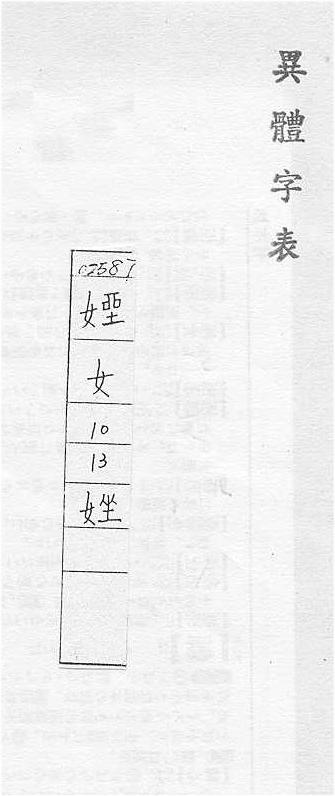 異體字表
02587
女
10
13
㛗